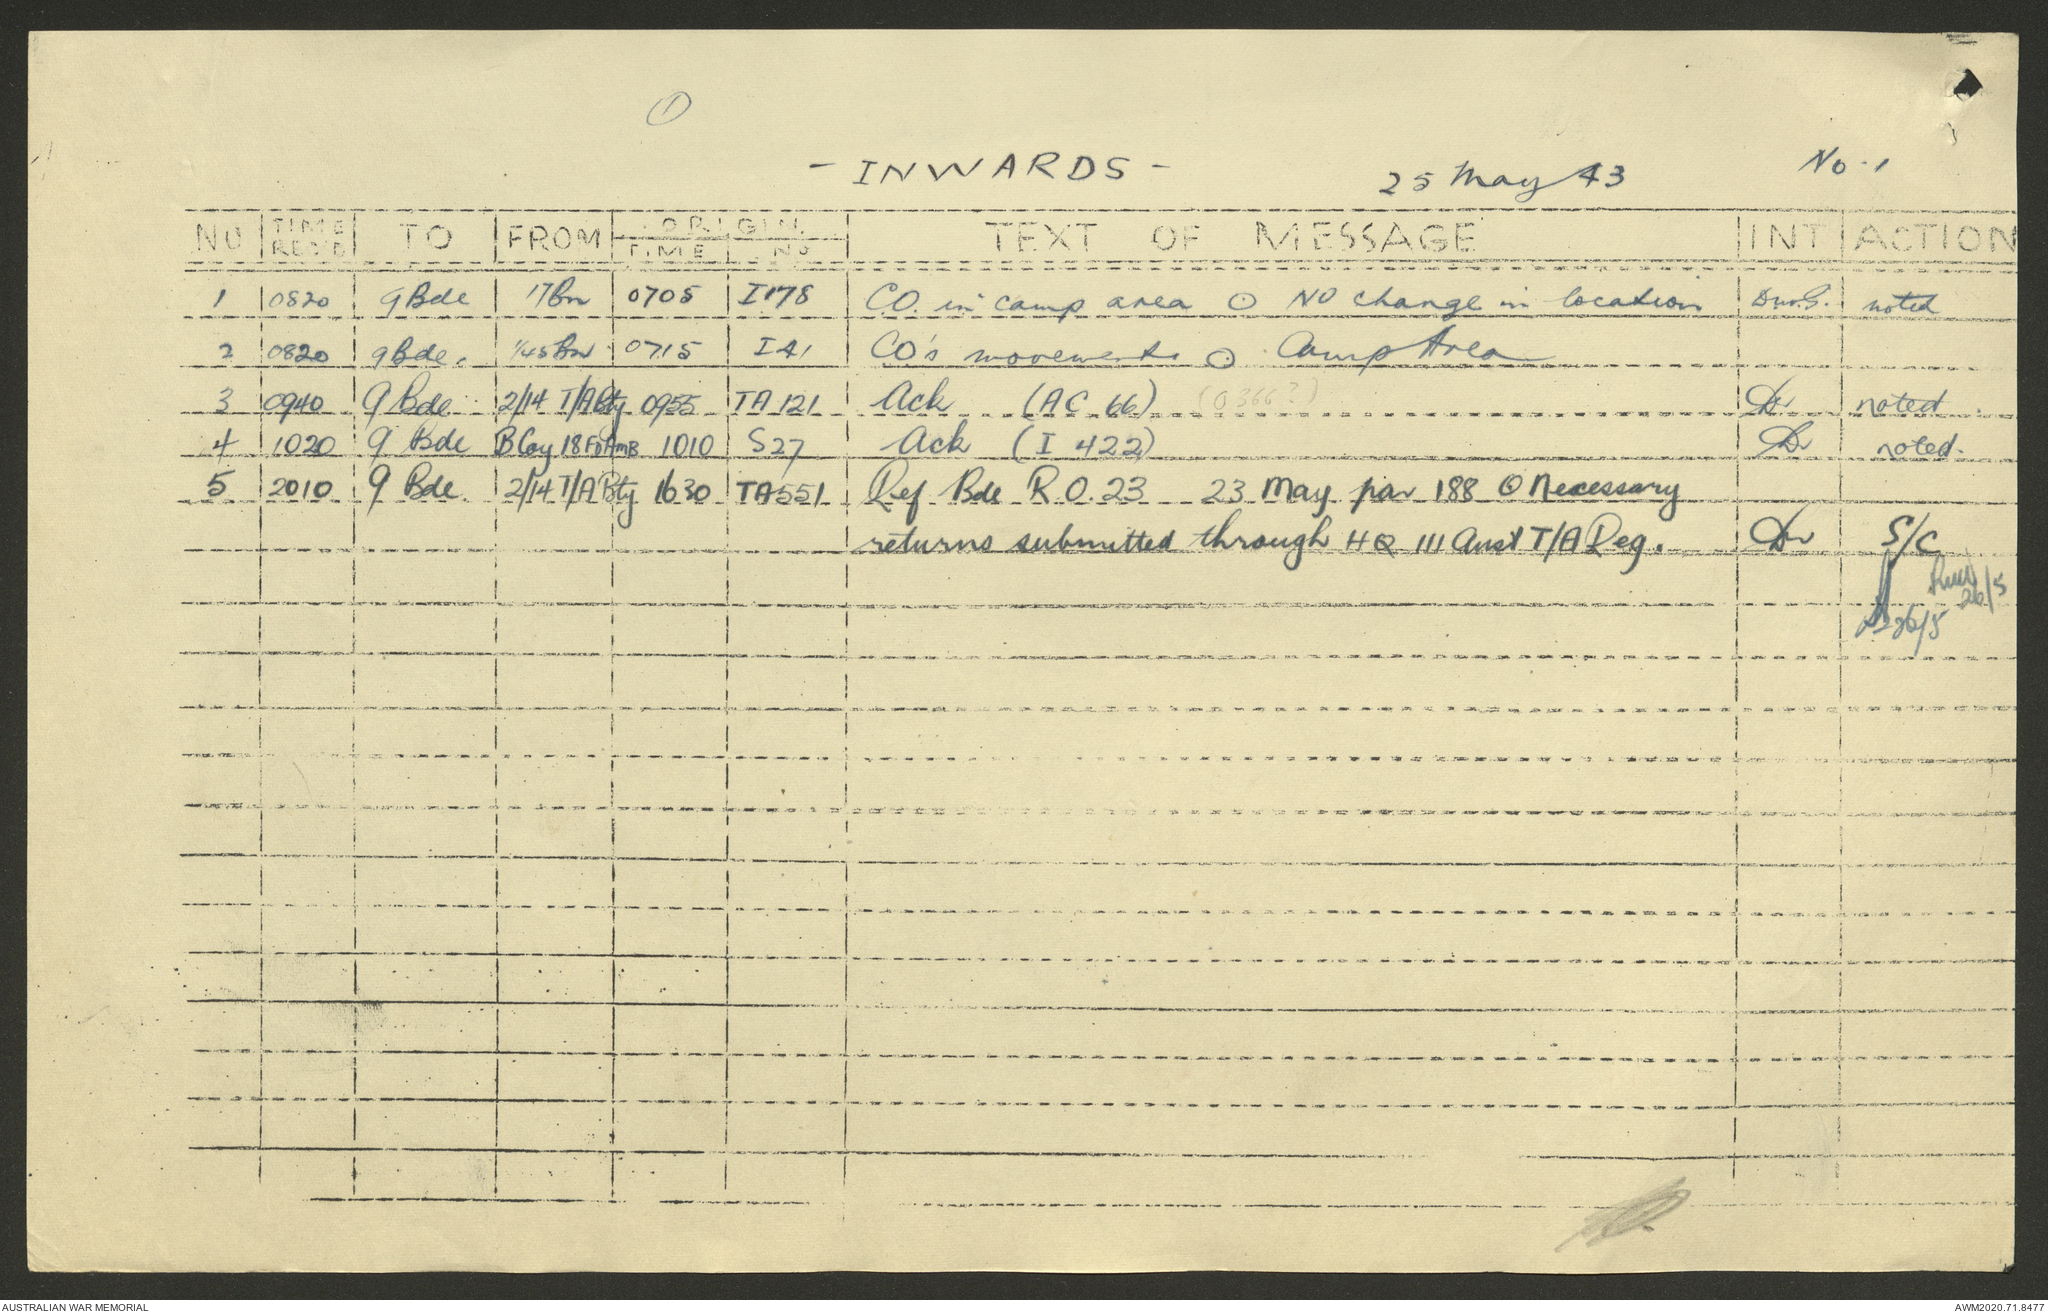 ①
- INWARDS -
25 May 43
No. 1
NO TIME REC'D TO FROM ORIGIN TIME NO TEXT OF MESSAGE INT ACTION
1 0820 9 Bde 17 Bn 0705 I178 C.O. in camp area ⊙ NO change in location noted
2 0820 9 Bde. 1/45 Bn 0715 I41 CO's movements ⊙ Camp Area
3 0940 9 Bde 2/14 T/A Bty 0955 TA 121 Ack (AC 66) (O366?) noted.
4 1020 9 Bde B Coy 18 FD AMB 1010 S27 Ack (I 422) noted.
5 2010 9 Bde. 2/14 T/A Bty 1630 TA 551 Ref Bde R O. 23 23 May par 188 ⊙ Necessary
returns submitted through HQ 111 Aust T/A Reg. S/C
26/5
26/5
AUSTRALIAN WAR MEMORIAL
AWM2020.71.8477